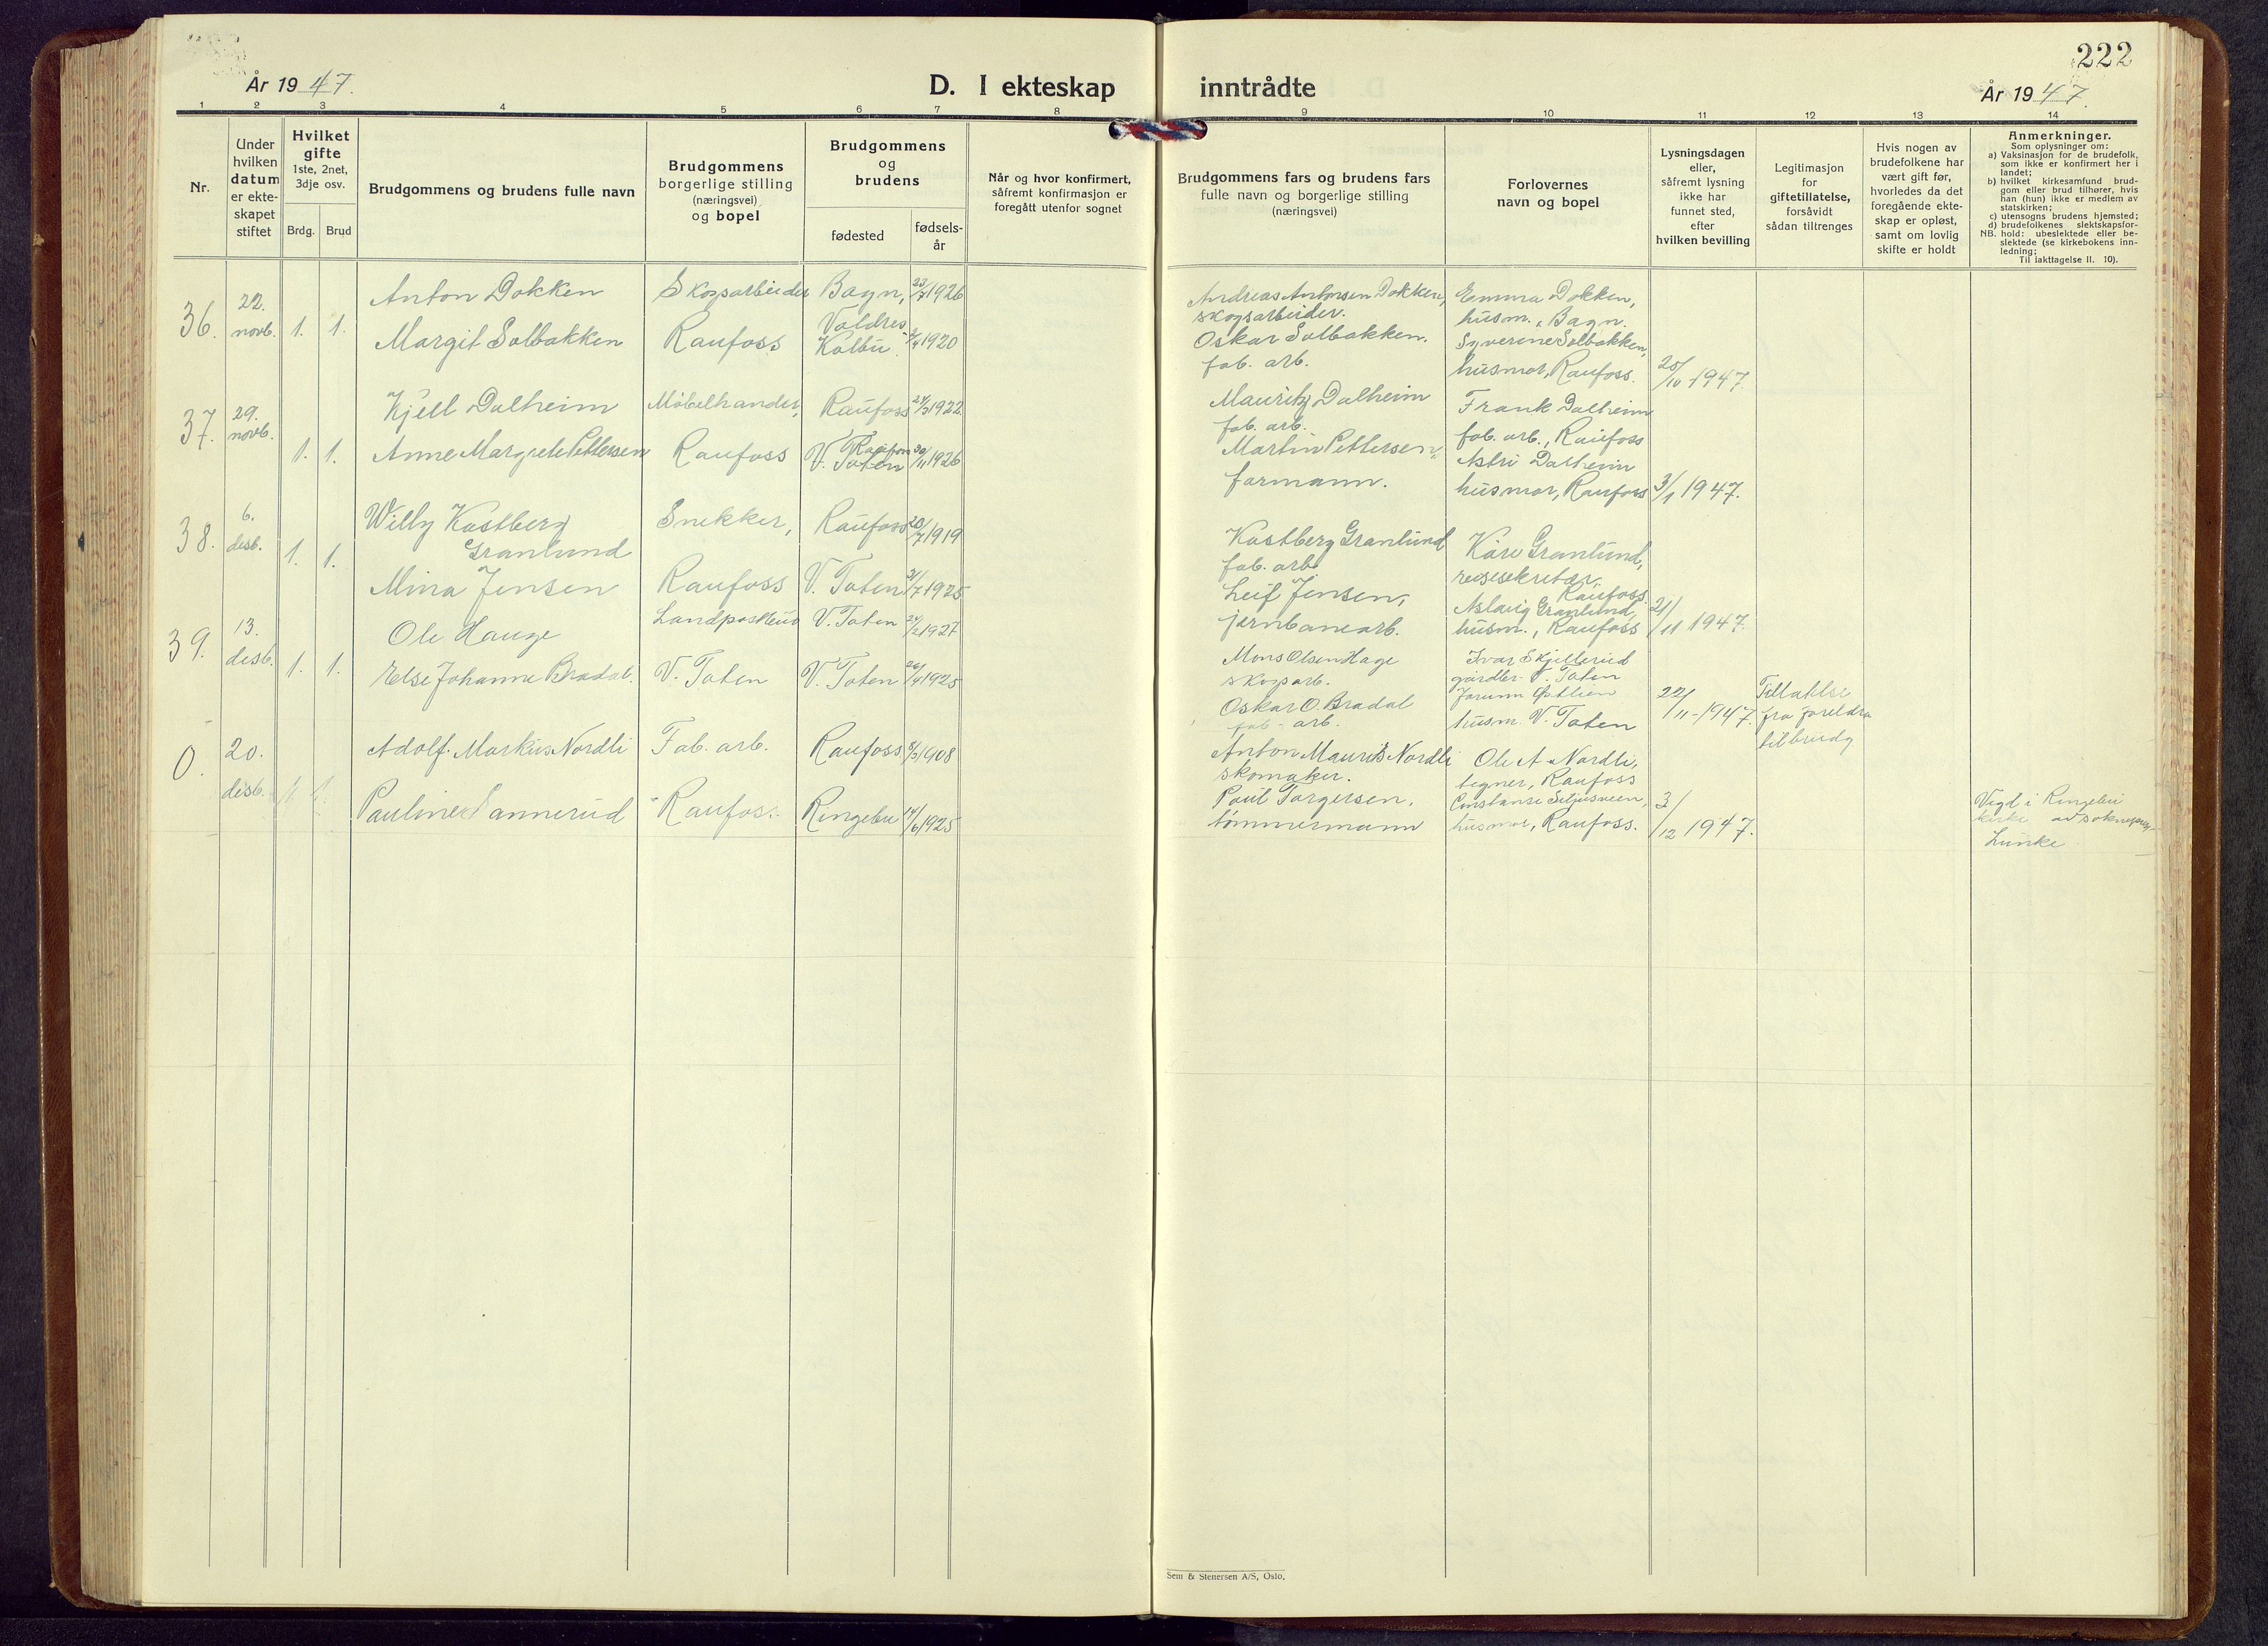 222
År 1947.
D. I ekteskap inntrådte
År 1947.
1 2 3 4 5 6 7 8 9 10 11 12 13 14
Nr.
Under hvilken datum er ekteskapet stiftet
Hvilket gifte 1ste, 2net, 3dje osv.
Brdg. Brud
Brudgommens og brudens fulle navn
Brudgommens borgerlige stilling (næringsvei) og bopel
Brudgommens og brudens
fødested
fødselsår
Når og hvor konfirmert, såfremt konfirmasjon er foregått utenfor sognet
Brudgommens fars og brudens fars fulle navn og borgerlige stilling (næringsvei)
Forlovernes navn og bopel
Lysningsdagen eller, såfremt lysning ikke har funnet sted, efter hvilken bevilling
Legitimasjon for giftetillatelse, forsåvidt sådan tiltrenges
Hvis nogen av brudefolkene har vært gift før, hvorledes da det foregående ekteskap er opløst, samt om lovlig skifte er holdt
Anmerkninger.
Som oplysninger om:
a) Vaksinasjon for de brudefolk, som ikke er konfirmert her i landet;
b) hvilket kirkesamfund brudgom eller brud tilhører, hvis han (hun) ikke er medlem av statskirken;
c) utensogns brudens hjemsted;
d) brudefolkenes slektskapsforhold: ubeslektede eller beslektede (se kirkebokens innledning;
NB.
Til iakttagelse II. 10).
36. 22. novb. 1. 1.
Anton Dokken Skogsarbeider Bagn, Valdres 23/7 1926
Margit Solbakken Raufoss Kolbu 2/4 1920
Andreas Antonsen Dokken, skogsarbeider.
Oskar Solbakken. fab. arb.
Emma Dokken, husm., Bagn.
Syverine Solbakken, husmor, Raufoss.
25/10 1947
37. 29. novb. 1. 1.
Kjell Dalheim Møbelhandler, Raufoss 24/3 1922
Anne Margrete Pettersen Raufoss V. Toten 30/11 1926
Mauritz Dalheim fab. arb.
Martin Pettersen, formann.
Frank Dalheim fab. arb., Raufoss
Astri Dalheim husmor, Raufoss
3/1 1947.
38. 6. desb. 1. 1.
Willy Kastberg Granlund Snekker, Raufoss 20/7 1919
Mina Jensen Raufoss V. Toten 31/7 1925
Kastberg Granlund fab. arb.
Leif Jensen, jernbanearb.
Kåre Granlund, reisesekretær, Raufoss.
Aslaug Granlund, husm., Raufoss
21/11 1947.
39. 13. desb. 1. 1.
Ole Hauge V. Toten 24/2 1927
Else Johanne Bradal. V. Toten V. Toten 26/4 1925
Mons Olsen Hage skogsarb.
Oskar O. Bradal fab. arb.
Ivar Skjellerud gårdbr. V. Toten
Jorunn Østlien husm. V. Toten
22/11-1947.
Tillatelse fra foreldre til brudg
0. 20. desb. 1. 1.
Adolf Markus Nordli Fab. arb. Raufoss 8/3 1908
Pauline Sannerud Raufoss Ringebu 14/6 1925
Anton Maurits Nordli skomaker.
Paul Torgersen, tømmermann
Ole A. Nordli, tegner, Raufoss
husmor, Raufoss.
3/12 1947.
Vigd i Ringebu kirke av sokneprest Lunke
Sem & Stenersen A/S, Oslo.